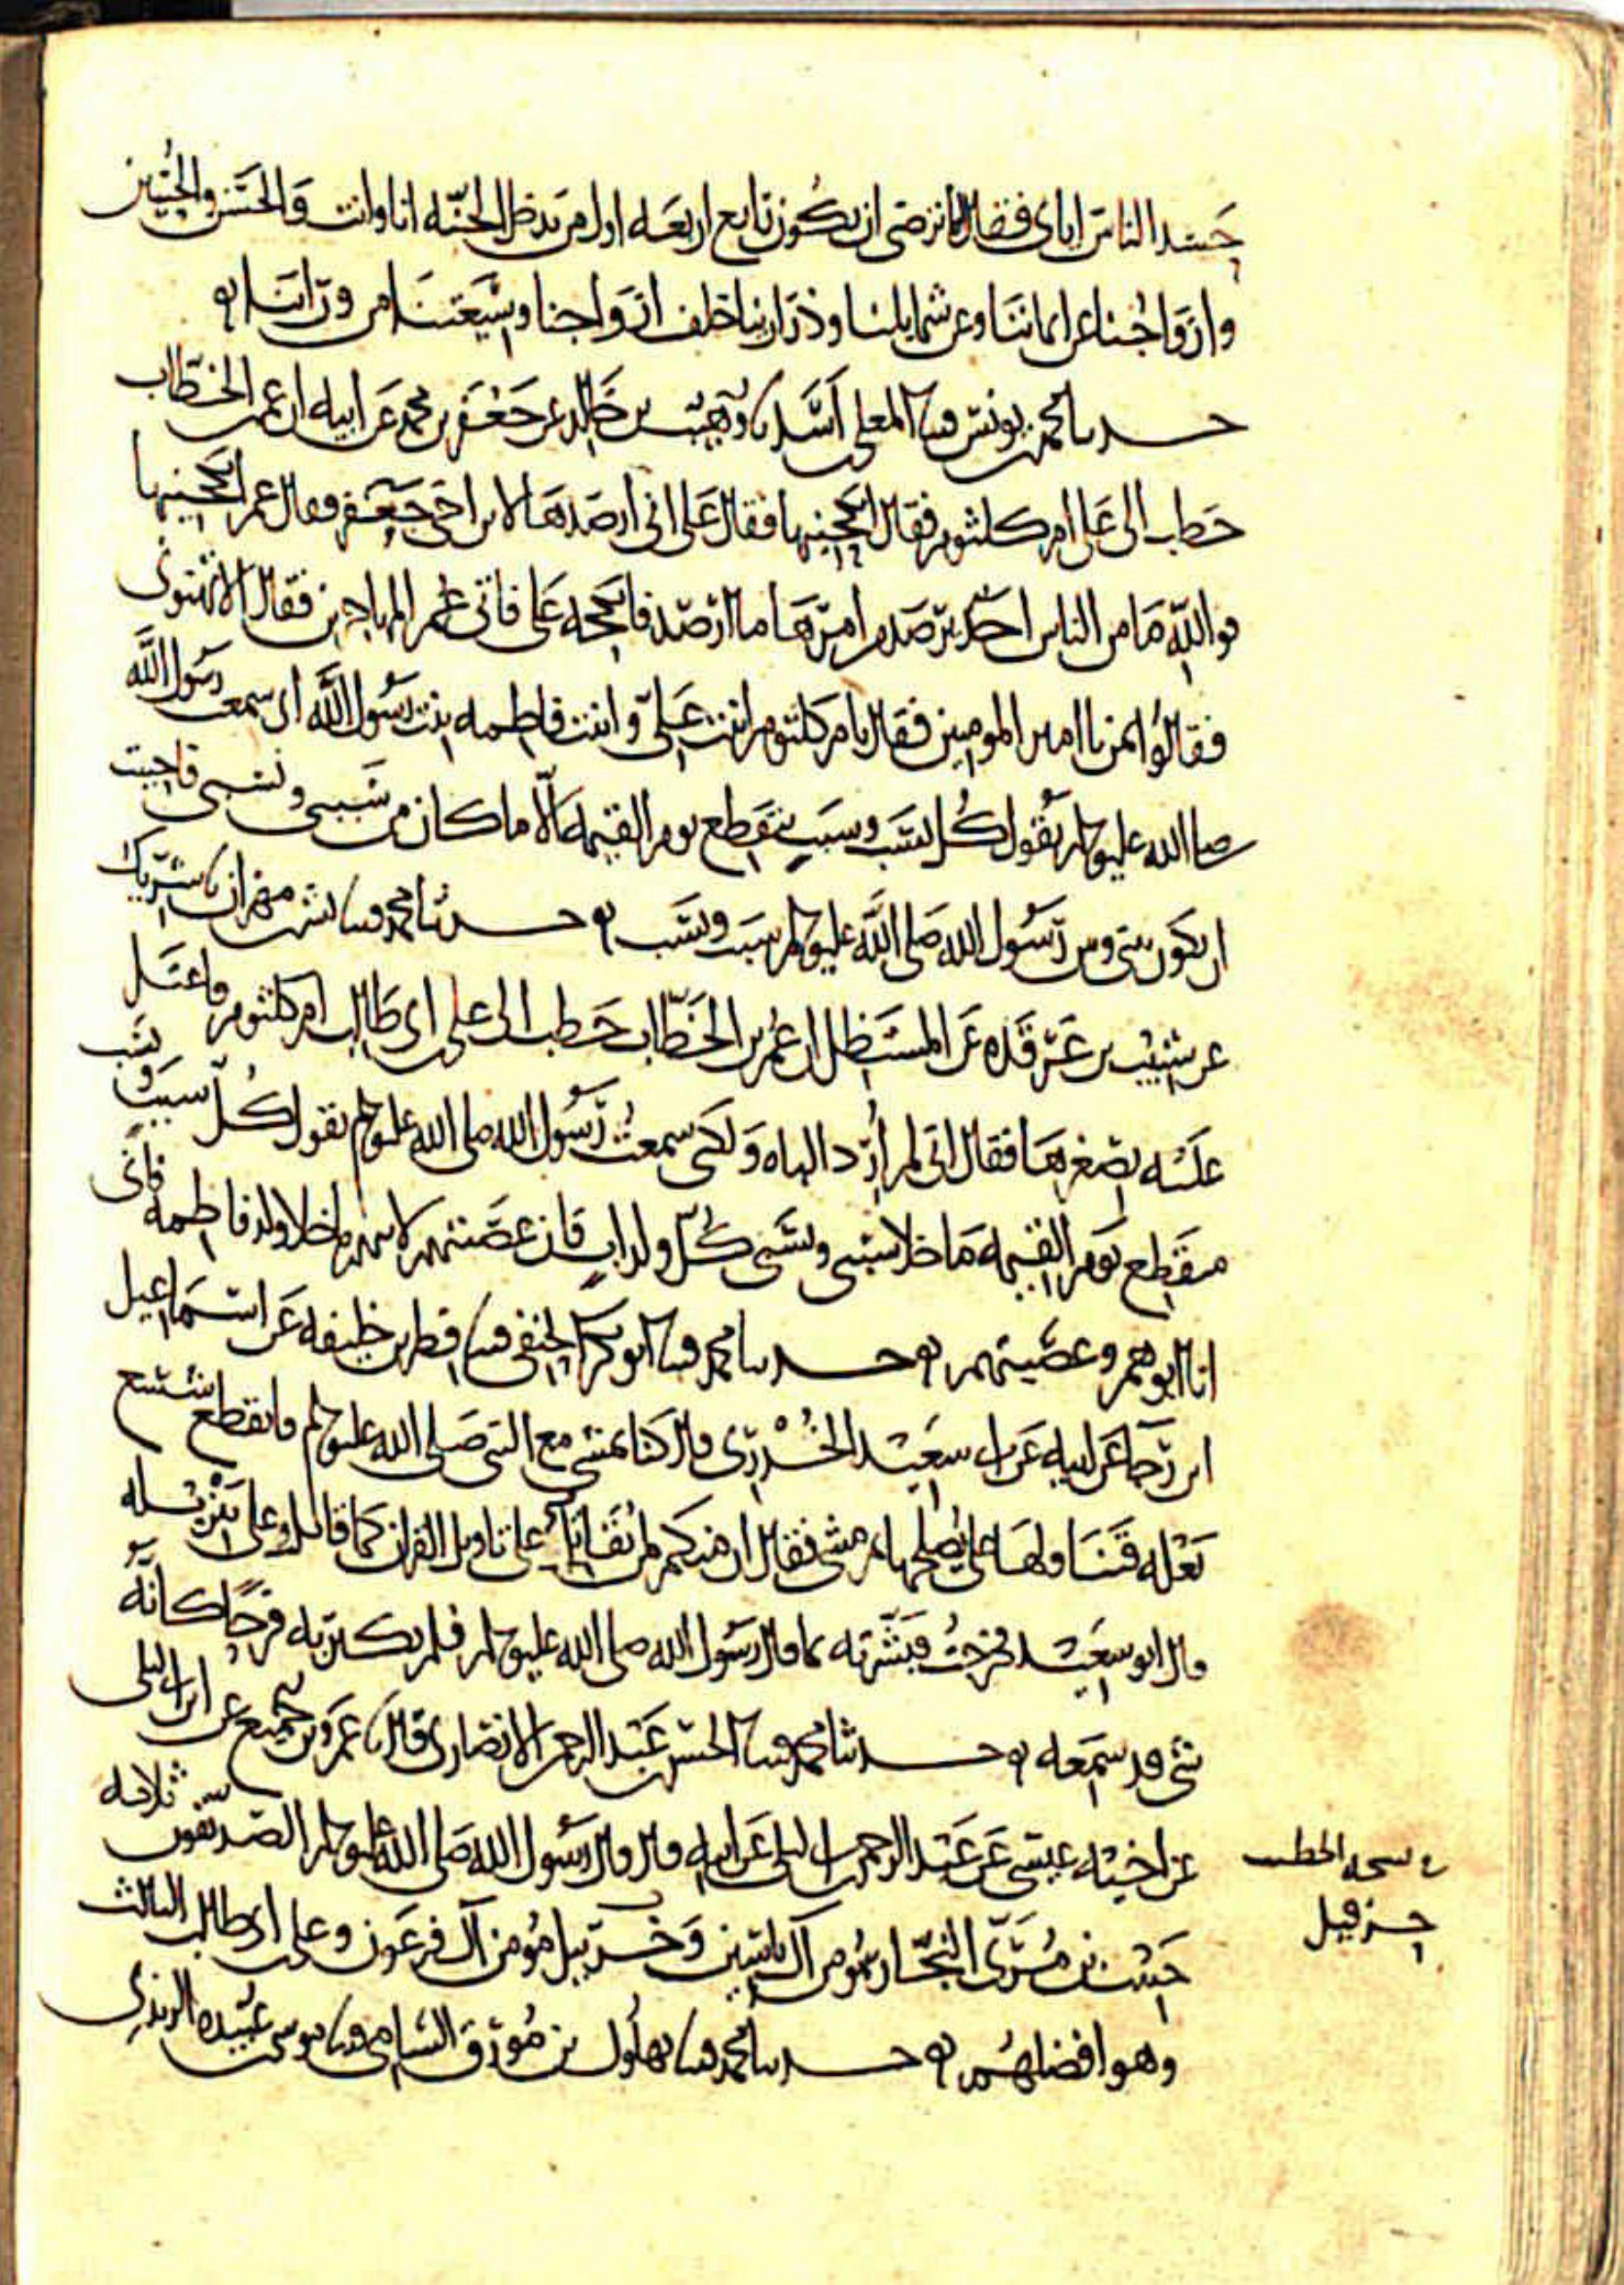 حسد الناس اياى فقال اما ترضى ان تكون رابع اربعه اول من يدخل الجنه انا وانت والحسن والحسين
وازواجنا عن ايماننا وعن شمايلنا وذرارينا خلف ازواجنا وشيعتنا من ورائنا
حدثنا محمد بن يونس قثنا المعلى بن اسد نا وهيب بن خالد عن جعفر بن محمد عن ابيه ان عمر بن الخطاب
خطب الى على ام كلثوم فقال انكحنيها فقال على انى ارصدها لابن اخى جعفر فقال عمر انكحنيها
فوالله ما من الناس احد يرصد من امرها ما ارصد فانكحه على فاتى عمر المهاجرين فقال الا تهنونى
فقالوا بمن يا امير المومنين فقال بام كلثوم ابنت على وابنت فاطمه بنت رسول الله انى سمعت رسول الله
صلى الله عليه وسلم يقول كل نسب وسبب ينقطع يوم القيمه الا ما كان من سببى ونسبى فاحببت
ان يكون بينى وبين رسول الله صلى الله عليه وسلم سبب ونسب حدثنا محمد قثنا بشر بن مهران نا شريك
عن شبيب بن غرقده عن المستظل ان عمر بن الخطاب خطب الى على بن ابى طالب ام كلثوم فاعتل
عليه بصغرها فقال انى لم ارد الباه ولكنى سمعت رسول الله صلى الله عليه وسلم يقول كل سبب ونسب
منقطع يوم القيمه ما خلا سببى ونسبى كل ولد اب فان عصبتهم لابيهم ما خلا ولد فاطمه فانى
انا ابوهم وعصبتهم حدثنا محمد قثنا ابو بكر الحنفى قثنا فطر بن خليفه عن اسماعيل
ابن رجا عن ابيه عن ابى سعيد الخدرى قال كنا نمشى مع النبى صلى الله عليه وسلم فانقطع شسع
نعله فتناولها على يصلحها ثم مشى فقال ان منكم لمن يقاتل على تاويل القران كما قاتلت على تنزيله
قال ابو سعيد فخرجت فبشرته بما قال رسول الله صلى الله عليه وسلم فلم يكبر به فرحا كانه
شى قد سمعه حدثنا محمد قثنا الحسن بن عبد الرحمن الانصارى قال نا عمرو بن جميع عن ابن ابى ليلى
عن اخيه عيسى عن عبد الرحمن بن ابى ليلى عن ابيه قال قال رسول الله صلى الله عليه وسلم الصديقون ثلاثه
حبيب بن مرى النجار مومن آل ياسين وخربيل مومن آل فرعون وعلى بن ابى طالب الثالث
وهو افضلهم حدثنا محمد قثنا بهلول بن مورق الشامى قثنا موسى بن عبيده الربذى
فى نسخه الخطيب
حزقيل